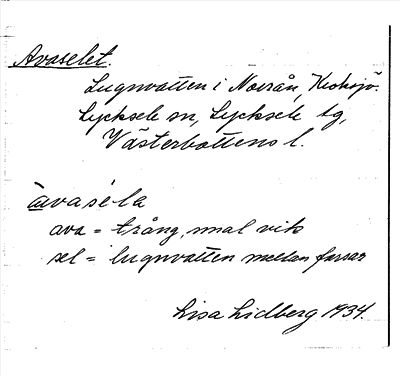 Avaselet.
Lugnvatten i Norrån, Kroksjö.
Lycksele sn, Lycksele tg,
Västerbottens l.
avasela
ava = trång, smal vik
sel = lugnvatten mellan forsar
Lisa Lidberg 1934.